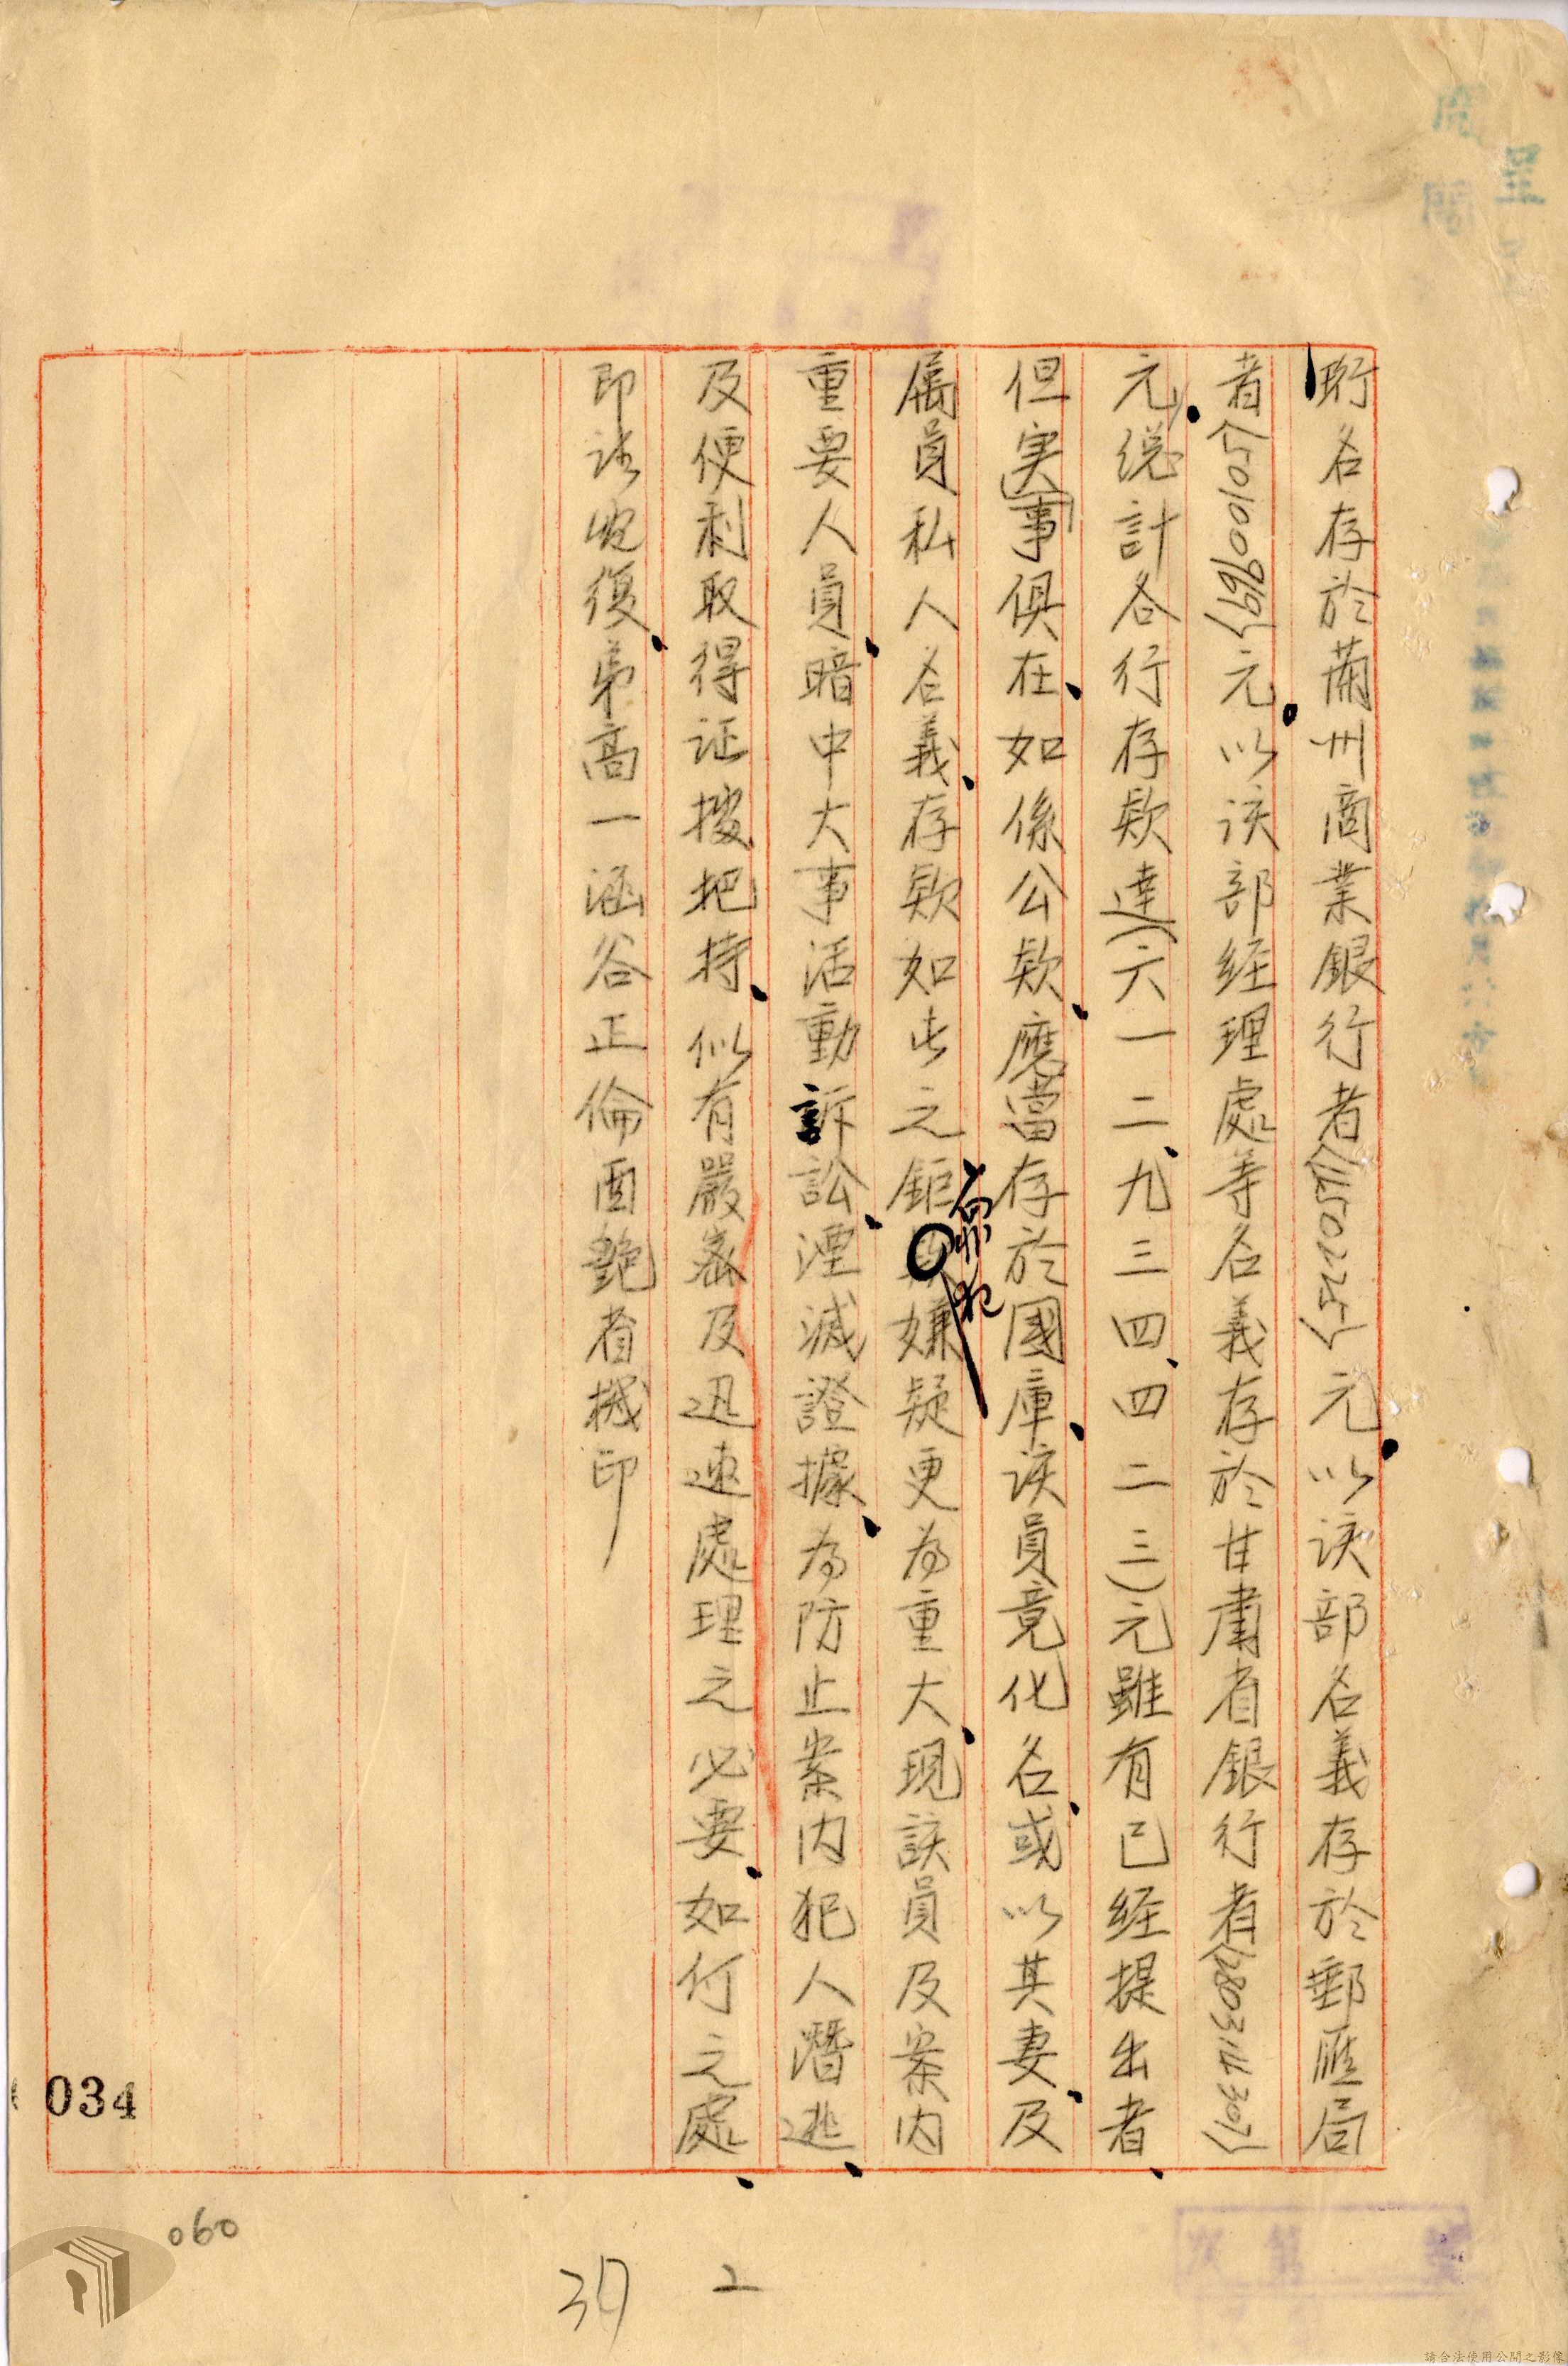 珩名存於蘭州商業銀行者(502251)元以該部名義存於郵滙局
者(15010096.99)元以该部経理處等名義存於甘肅省銀行者(2803114.307)
元總計各行存欵達(六一二九三四四二三)元雖有已経提出者
但実事俱在如係公欵應當存於國庫该員竟化名或以其妻及
属員私人名義存欵如此之鉅嫌疑更為重大現該員及案内
重要人員暗中大事活動訴訟湮滅證據為防止案内犯人潛逃
及便利取得证據把持似有嚴密及迅速處理之必要如何之處
即請電復弟高一涵谷正倫酉艷省機印
034
060
37
2
請合法使用公開之影像